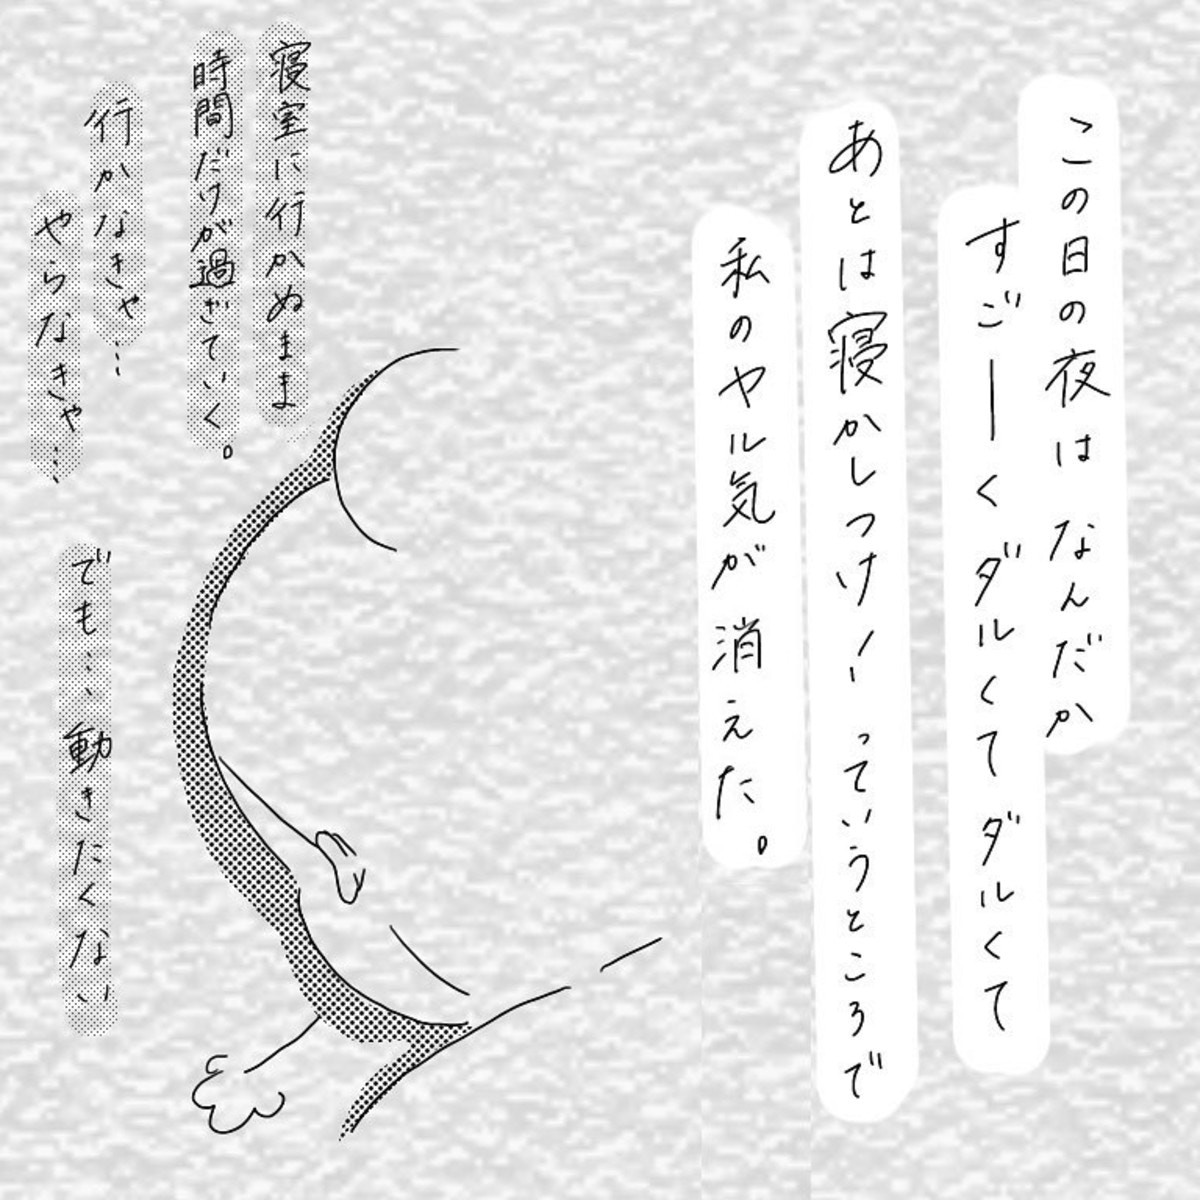 この日の夜はなんだか
すご―くダルくてダルくて
あとは寝かしつけ!っていうところで
私のヤル気が消えた。
寝室に行かぬまま
時間だけが過ぎていく。
行かなきゃ…
やらなきゃ…
でも…動きたくない